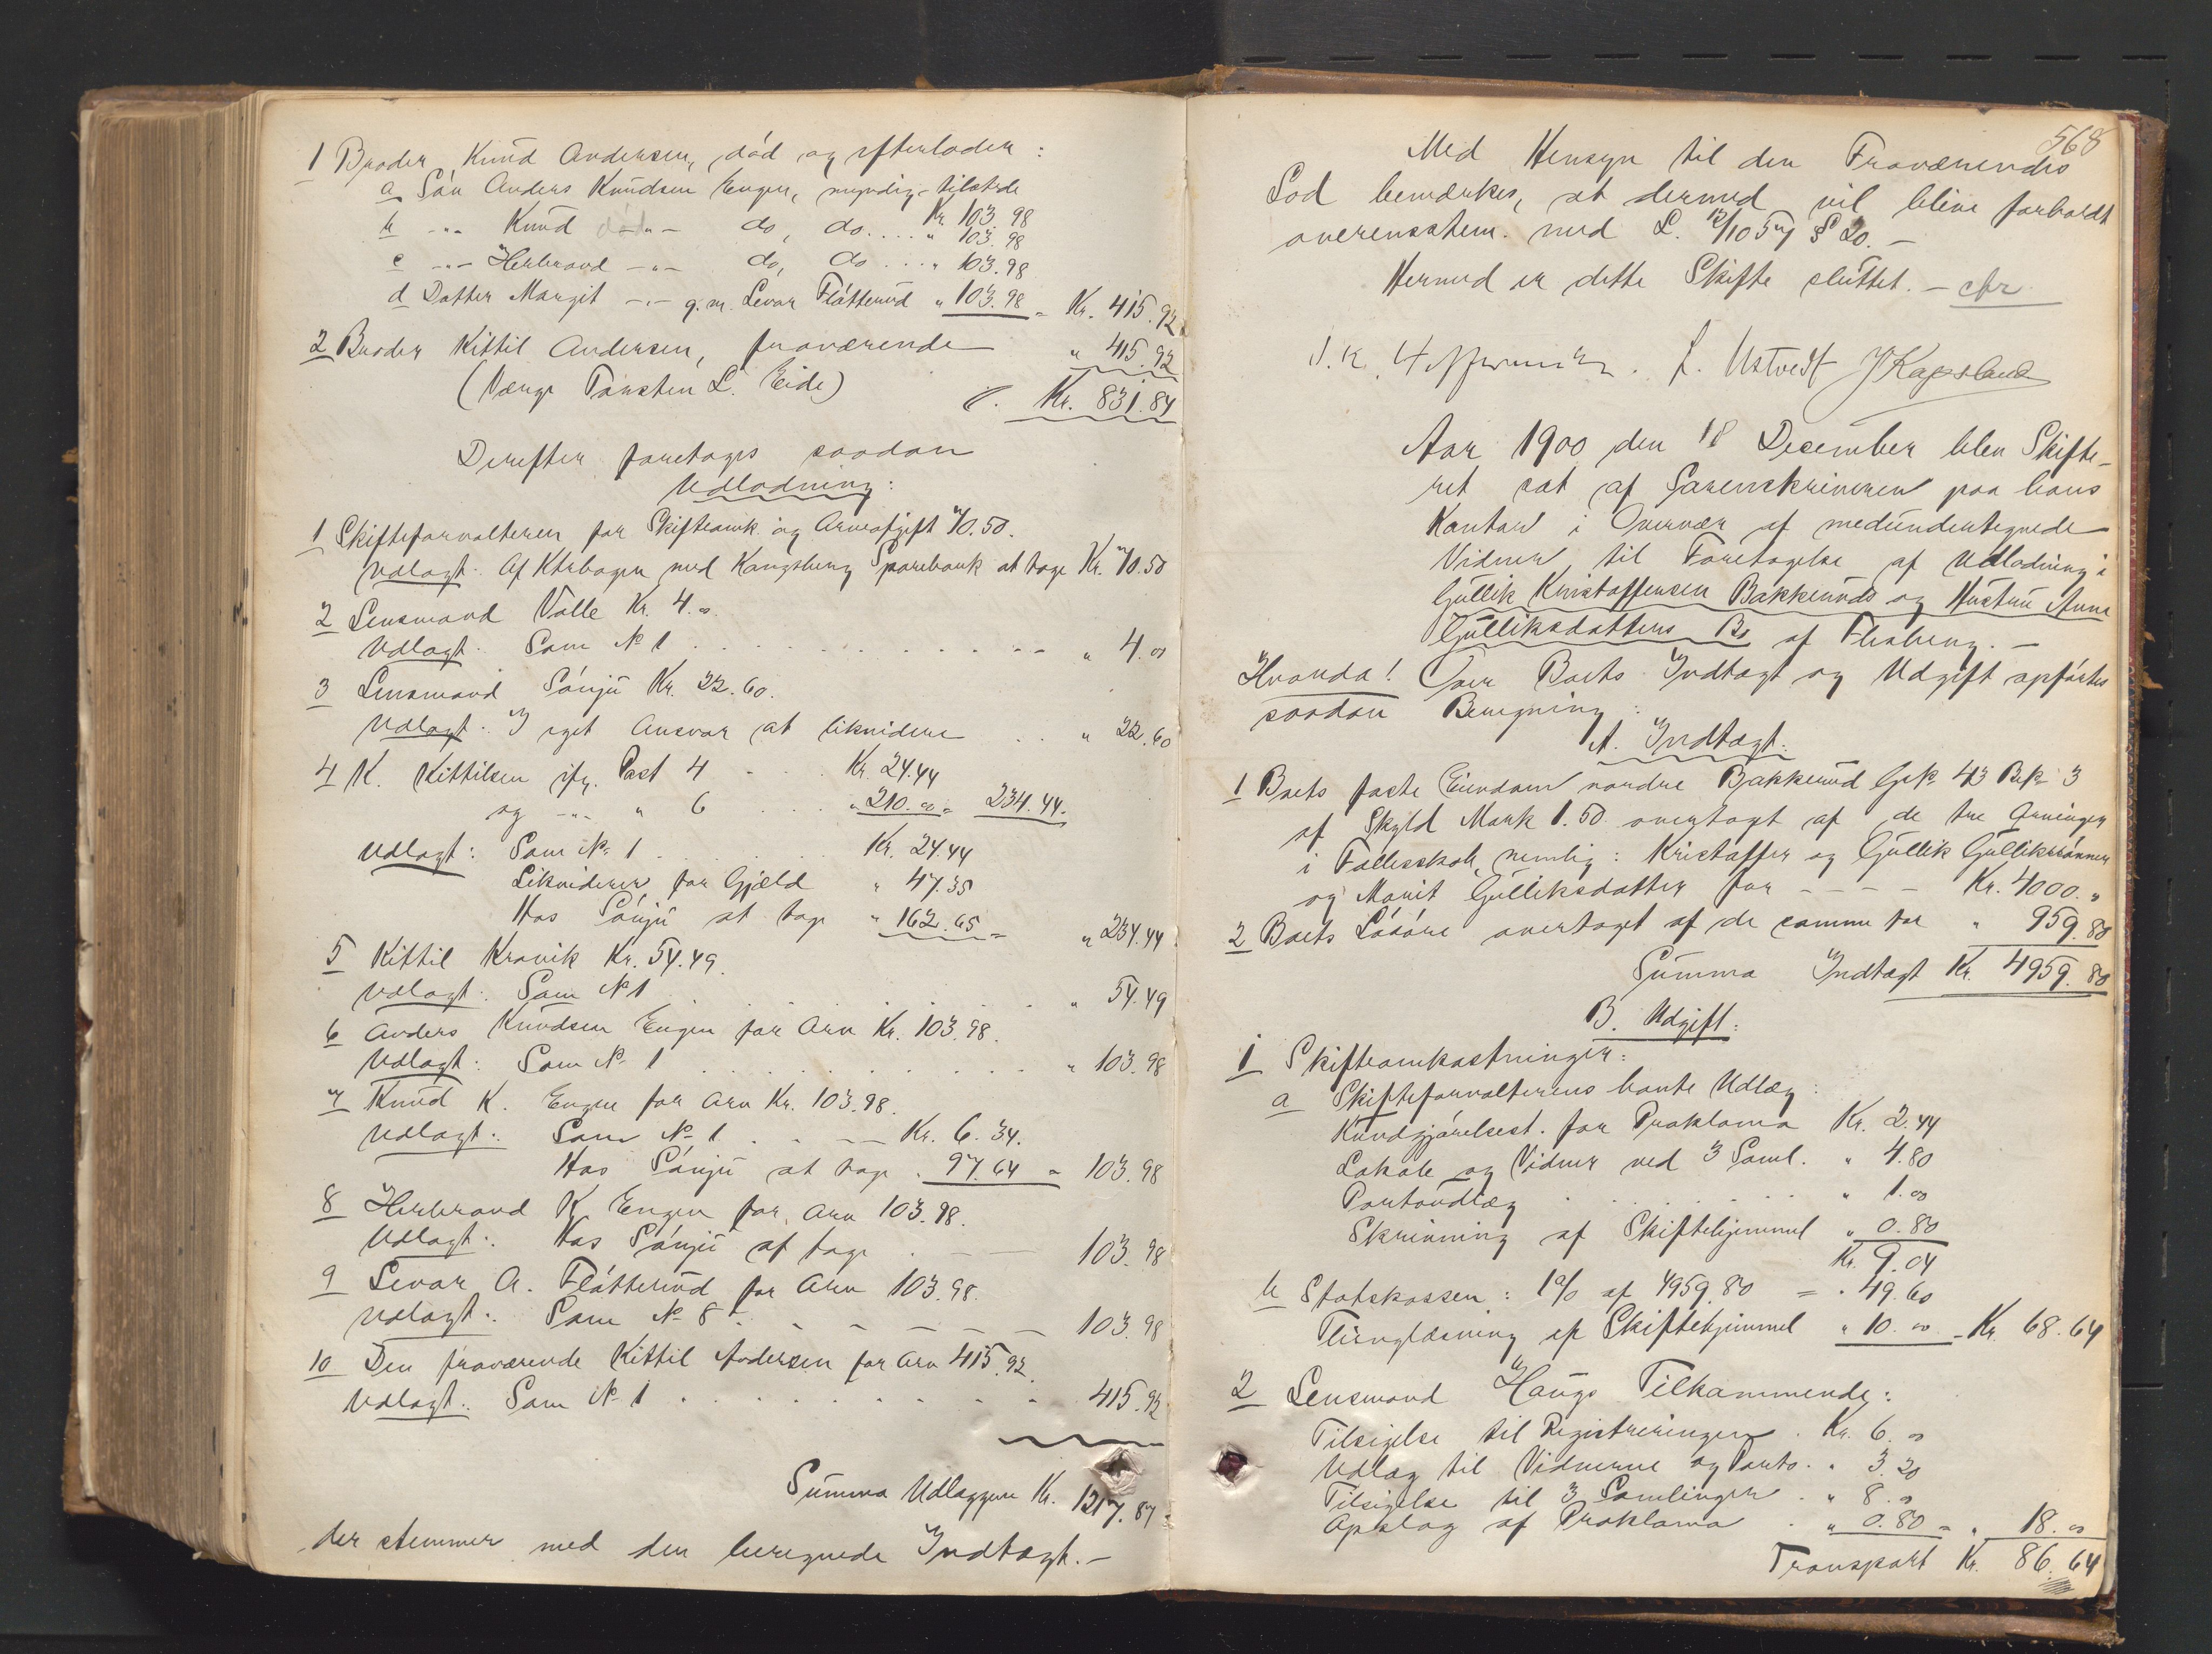 1 Broder Knud Andersen, død og efterlader:
a Søn Anders Knudsen Engen, myndig tilstede
Kr. 103.98
b -"- Knud -"- do, do.... " 103.98
c -"- Herbrand -"- do, do... " 103.98
d Datter Margit -"- g.m. Levor Fløtterud " 103.98 = Kr. 415.92
2 Broder Kittil Andersen, fraværende " 415.92
(Værge Torsten L. Eide)
Kr. 831.84
Derefter foretoges saadan
Udlodning:
1 Skifteforvalteren for Skifteomk. og Arveafgift 70.50.
Udlagt: Af Ktrbogen med Kongsberg Sparebank at tage Kr. 70.50
2 Lensmand Valle Kr. 4.00
Udlagt: Som No 1 . . . . . . " 4.00
3 Lensmand Sønju Kr. 22.60.
Udlagt: I eget Ansvar at likvidere . . " 22.60
4 K. Kittilsen ifg. Post 4 . . Kr. 24.44
og -"- " 6 . . . " 210.00 = 234.44.
Udlagt: Som No 1 . . . . Kr. 24.44
Likviderer for Gjæld " 47.35
Hos Sønju at tage " 162.65 = " 234.44
5 Kittil Kravik Kr. 54.49.
Udlagt: Som No 1 . . . . . " 54.49
6 Anders Knudsen Engen for Arv Kr. 103.98.
Udlagt: Som No 1 . . . . . " 103.98
7 Knud K. Engen for Arv Kr. 103.98.
Udlagt: Som No 1 . . - - Kr. 6.34.
Hos Sønju at tage " 97.64 = 103.98
8 Herbrand K. Engen for Arv 103.98.
Udlagt: Hos Sønju at tage . - - 103.98
9 Levor A. Fløtterud for Arv 103.98.
Udlagt: Som No 8 . - - - - 103.98
10 Den fraværende Kittil Andersen for Arv 415.92.
Udlagt: Som No 1 . . . . . 415.92
Summa Udlæggene Kr. 1217.87
der stemmer med den beregnede Indtægt. -
568
Med Hensyn til den Fraværendes
Lod bemærkes, at dermed vil blive forholdt
overensstem. med L. 12/10 57 § 20. -
Hermed er dette Skifte sluttet. -
L. Ustvedt J Kapsland
Aar 1900 den 18 December blev Skifte-
ret sat af Sorenskriveren paa hans
Kontor i Overvær af medundertegnede
Vidner til Foretagelse af Udlodning i
Gullik Kristoffersen Bakkeruds og Hustru Anne
Gulliksdatters Bo af Flesberg. -
Hvorda! Over Boets Indtægt og Udgift opførtes
saadan Beregning:
A. Indtægt.
1 Boets faste Eiendom nordre Bakkerud Gsk. 43 Bsk. 3
af Skyld Mark 1.50 overtagt af de tre Arvinger
i Fællesskab, nemlig: Kristoffer og Gullik Gullikssønner
og Marit Gulliksdatter for - - - - Kr. 4000. "
2 Boets Løsøre overtaget af de samme for " 959.80
Summa Indtægt Kr. 4959.80
B. Udgift:
1 Skifteomkostninger:
a Skifteforvalterens havte Udlæg:
Kundgjørelsest. for Proklama Kr. 2.44
Lokale og Vidner ved 3 Saml. " 4.80
Portoudlæg . . . . . " 1.00
Skrivning af Skiftehjemmel " 0.80
Kr. 9.04
b Statskassen: 1% af 4959.80 = " 49.60
Thinglæsning af Skiftehjemmel " 10.00 = Kr. 68.64
2 Lensmand Haugs Tilkommende:
Tilsigelse til Registreringen . Kr. 6.00
Udlæg til Vidnerne og Porto. " 3.20
Tilsigelse til 3 Samlinger . " 8.00
Opslag af Proklama . " 0.80 = " 18.00
Transport Kr. 86.64